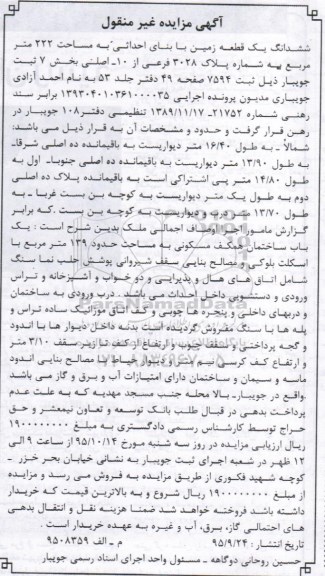 آگهی مزایده غیر منقول
ششدانگ یک قطعه زمین با بنای احداثی به مساحت ۲۲۲ متر
مربع به شماره پلاک ۳۰۲۸ فرعی از ۱۰- اصلی بخش ۷ ثبت
جویبار ذیل ثبت ۷۵۹۴ صفحه ۴۹ دفتر جلد ۵۳ به نام احمد آزادی
جویباری مدیون پرونده اجرایی ۱۳۹۳۰۴۰۱۰۳۶۱۰۰۰۰۳۵ برابر سند
رهنی شماره ۲۱۷۵۲- ۱۳۸۹/۱۱/۱۷ تنظیمی دفتر ۱۰۸ جویبار در
رهن قرار گرفت و حدود و مشخصات آن به قرار ذیل می باشد:
شمالاً - به طول ۱۶/۴۰ متر دیواریست به باقیمانده ده اصلی شرقا-
به طول ۱۳/۹۰ متر دیواریست به باقیمانده ده اصلی جنوبا- اول به
طول ۱۴/۸۰ متر پی اشتراکی است به باقیمانده پلاک ده اصلی
دوم به طول یک متر دیواریست به کوچه بن بست غربا - به
طول ۱۳/۷۰ متر درب و دیواریست به کوچه بن بست. که برابر
گزارش مامور اجرا اوصاف اجمالی ملک بدین شرح است : یک
باب ساختمان همکف مسکونی به مساحت حدود ۱۳۹ متر مربع با
اسکلت بلوکی و مصالح بنایی سقف شیروانی پوشش حلب نما سنگ
شامل اتاق های هال و پذیرایی و دو خواب و آشپزخانه و تراس
ورودی و دستشویی داخل احداث می باشد . درب ورودی به ساختمان
و دربهای داخلی و پنجره ها چوبی و کف اتاق موزائیک ساده تراس و
پله ها با سنگ مفروش گردیده است بدنه داخل دیوار ها با اندود
و گچه پرداختی و سقف چوب و ارتفاع از کف تا زیر سقف ۳/۱۰ متر
و ارتفاع کف کرسی نیم متر و دیوار حیاط با مصالح بنایی اندود
ماسه و سیمان و ساختمان دارای امتیازات آب و برق و گاز می باشد
.واقع در جویبار- بالا محله جنب مسجد مهدیه که به علت عدم
پرداخت بدهی در قبال طلب بانک توسعه و تعاون نیمعشر و حق
حراج توسط کارشناس رسمی دادگستری به مبلغ ۱۹۰۰۰۰۰۰۰۰
ریال ارزیابی مزایده در روز سه شنبه مورخ ۹۵/۱۰/۱۴ از ساعت ۹ الی
۱۲ ظهر در شعبه اجرای ثبت جویبار به نشانی خیابان بحر خزر -
کوچه شهید فکوری از طریق مزایده به فروش می رسد و مزایده
از مبلغ ۱۹۰۰۰۰۰۰۰۰ ریال شروع و به بالاترین قیمت که خریدار
داشته باشد فروخته خواهد شد ضمنا هزینه نقل و انتقال بدهی
های احتمالی گاز، برق، آب و غیره به عهده خریدار است .
تاریخ انتشار : ۹۵/۹/۲۴ م - الف ۹۵۰۸۳۵۹
حسین روحانی دوگاهه - مسئول واحد اجرای اسناد رسمی جویبار